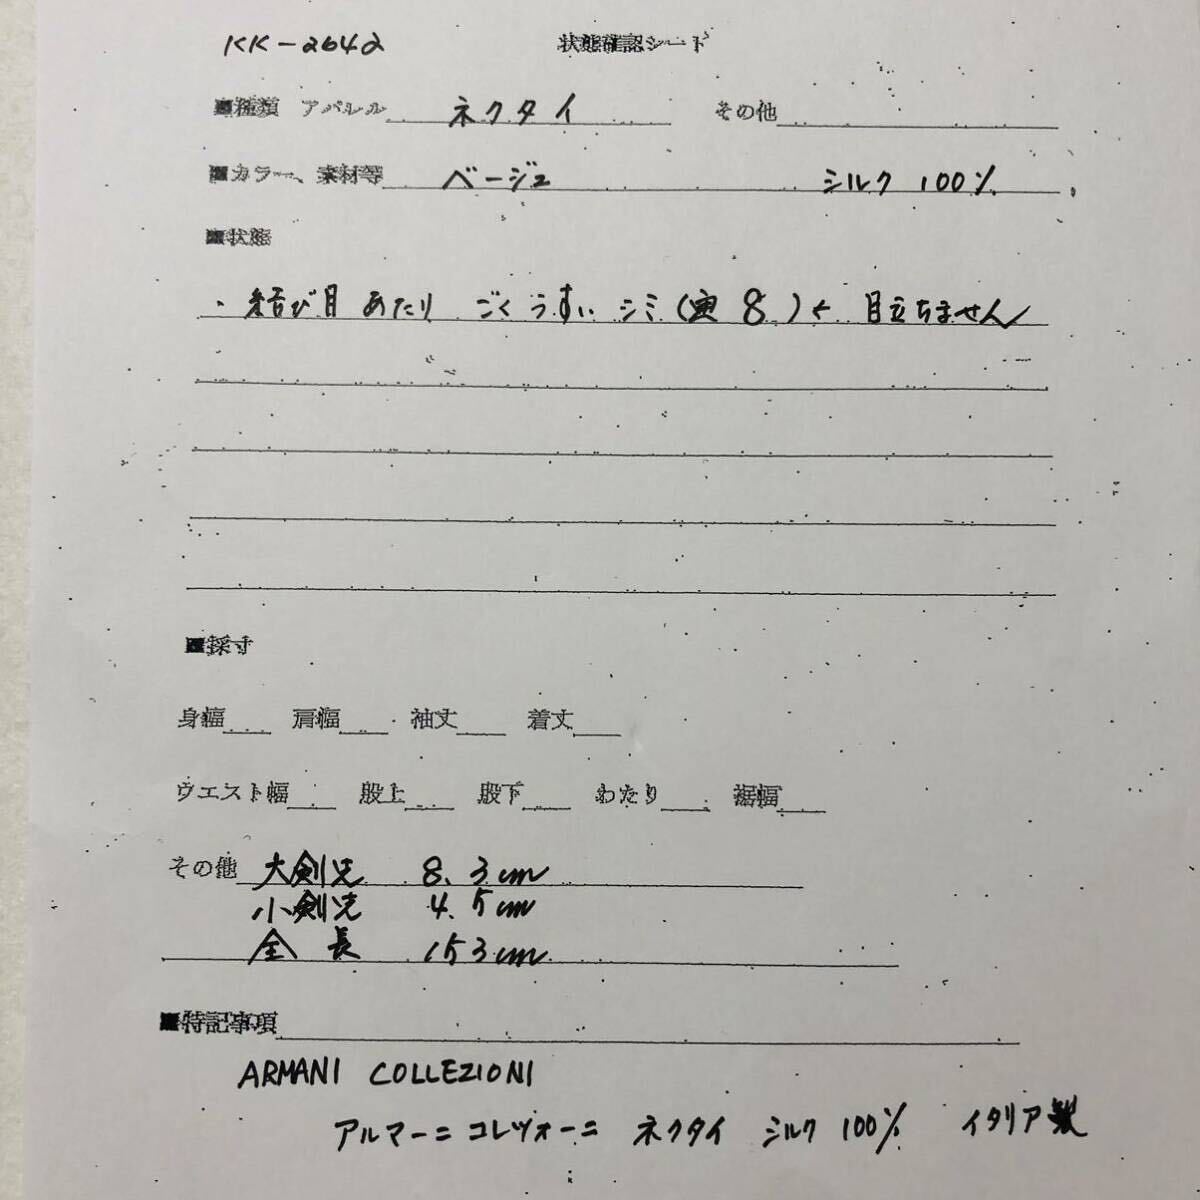 KK-2642 状態確認シート
■種類 アパレル ネクタイ その他
■カラー、素材等 ベージュ シルク 100%
■状態
・結び目 あたり ごくうすい シミ ( 8 ) ← 目立ちません
■採寸
身幅 肩幅 袖丈 着丈
ウエスト幅 股上 股下 わたり 裾幅
その他 大剣先 8.3cm
小剣先 4.5cm
全長 153cm
■特記事項
ARMANI COLLEZIONI
アルマーニ コレツォーニ ネクタイ シルク 100% イタリア製